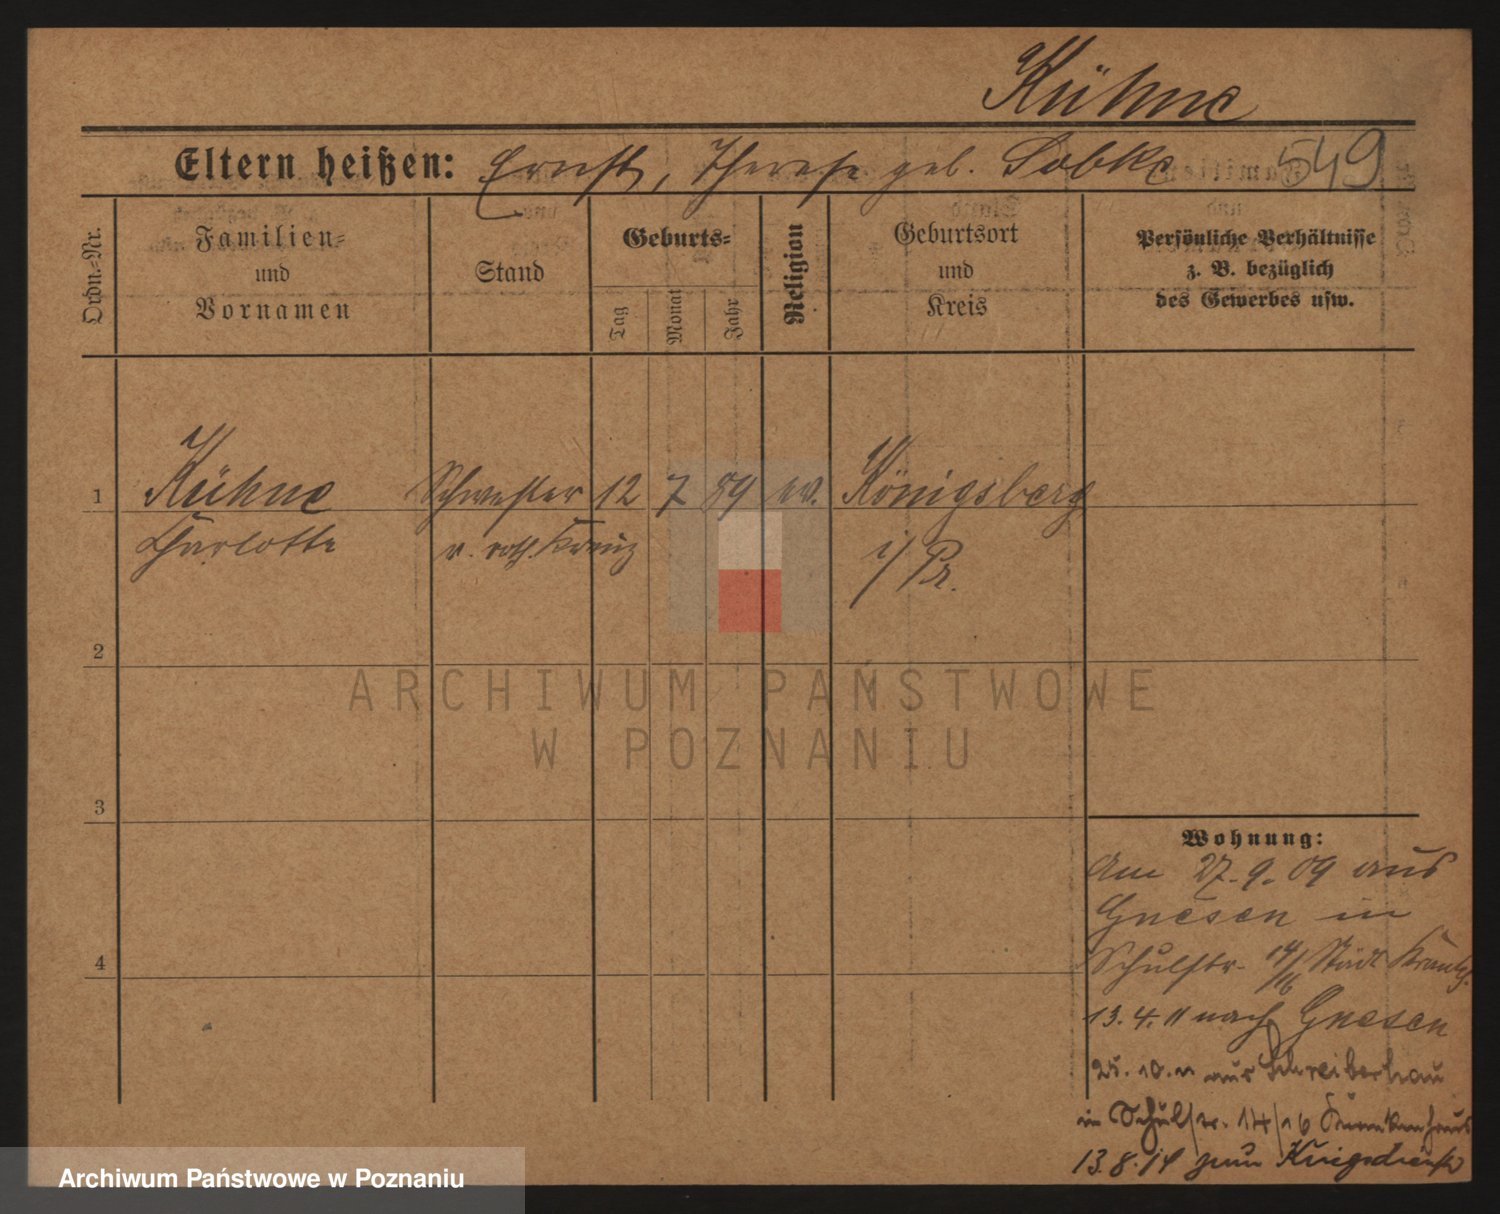 Kühne
Eltern heißen: Ernst, Therese geb. Sobke 549
Ordn.-Nr.
Familien-
und
Vornamen
Stand
Geburts-
Tag
Monat
Jahr
Religion
Geburtsort
und
Kreis
Persönliche Verhältnisse
z. B. bezüglich
des Gewerbes usw.
1 Kühne Schwester 12 7 89 ev. Königsberg
Charlotte v. roth. Kreuz i/Pr.
2
3
4
Wohnung:
Am 27.9.09 aus
Gnesen in
Schulstr. 14/16 Städt. Krankh.
13.4.11 nach Gnesen
25.10.11 aus Schreiberhau
in Schulstr. 14/16 Krankenhaus
13.8.14 zum Kriegsdienst
ARCHIWUM PAŃSTWOWE
W POZNANIU
Archiwum Państwowe w Poznaniu